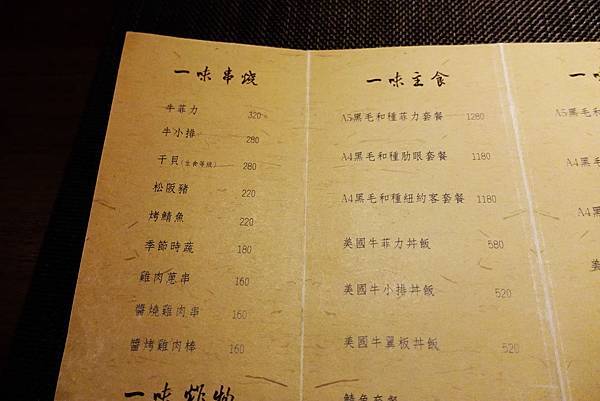 一味串燒
牛菲力 320
牛小排 280
干貝(生食等級) 280
松阪豬 220
烤鯖魚 220
季節時蔬 180
雞肉蔥串 160
醬燒雞肉串 160
鹽烤雞肉棒 160
一味炸物
一味主食
A5黑毛和種菲力套餐 1280
A4黑毛和種肋眼套餐 1180
A4黑毛和種紐約客套餐 1180
美國牛菲力丼飯 580
美國牛小排丼飯 520
美國牛翼板丼飯 520
鯖魚套餐
一味
A5黑毛和種
A4黑毛和種
A4黑